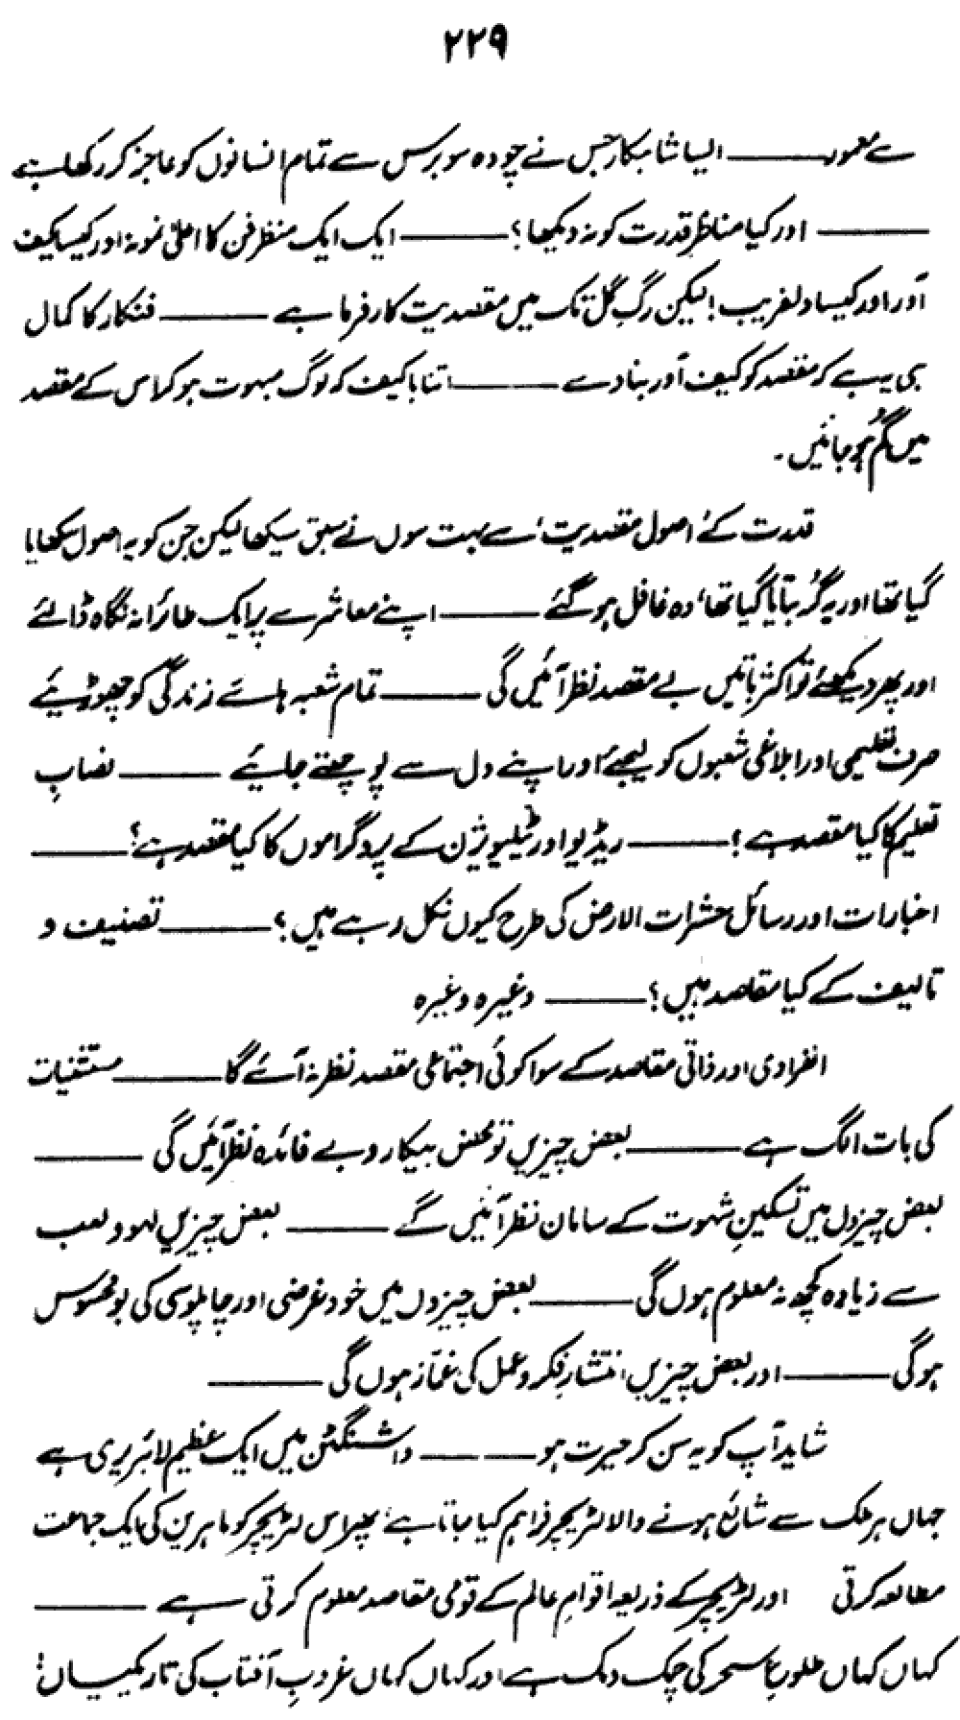 ۲۲۹
سے معمور ——— ایسا شاہکار جس نے چودہ سو برس سے تمام انسانوں کو عاجز کر رکھا ہے
——— اور کیا مناظرِ قدرت کو نہ دیکھا؟ ——— ایک ایک منظر فن کا اعلیٰ نمونہ اور کیسا کیف
آور اور کیسا دلفریب! لیکن رگِ گل تک میں مقصدیت کار فرما ہے ——— فنکار کا کمال
ہی یہ ہے کہ مقصد کو کیف آور بنا دے ——— اتنا باکیف کہ لوگ مبہوت ہو کر اس کے مقصد
میں گُم ہو جائیں۔
قدرت کے ’اصول مقصدیت‘ سے بہت سوں نے سبق سیکھا لیکن جن کو یہ اصول سکھایا
گیا تھا اور یہ گُر بتایا گیا تھا، وہ غافل ہو گئے ——— اپنے معاشرے پر ایک طائرانہ نگاہ ڈالئے
اور پھر دیکھئے تو اکثر باتیں بے مقصد نظر آئیں گی ——— تمام شعبہ ہائے زندگی کو چھوڑیئے
صرف تعلیمی اور ابلاغی شعبوں کو لیجئے اور اپنے دل سے پوچھتے جایئے ——— نصابِ
تعلیم کا کیا مقصد ہے؟ ——— ریڈیو اور ٹیلیویژن کے پروگراموں کا کیا مقصد ہے؟ ———
اخبارات اور رسائل حشرات الارض کی طرح کیوں نکل رہے ہیں؟ ——— تصنیف و
تالیف کے کیا مقاصد ہیں؟ ——— وغیرہ وغیرہ
انفرادی اور ذاتی مقاصد کے سوا کوئی اجتماعی مقصد نظر نہ آئے گا ——— مستثنیات
کی بات الگ ہے ——— بعض چیزیں تو محض بیکار و بے فائدہ نظر آئیں گی ———
بعض چیزوں میں تسکینِ شہوت کے سامان نظر آئیں گے ——— بعض چیزیں لہو و لعب
سے زیادہ کچھ نہ معلوم ہوں گی ——— بعض چیزوں میں خود غرضی اور چاپلوسی کی بو محسوس
ہو گی ——— اور بعض چیزیں انتشارِ فکر و عمل کی غماز ہوں گی ———
شاید آپ کو یہ سن کر حیرت ہو ——— واشنگٹن میں ایک عظیم لائبریری ہے
جہاں ہر ملک سے شائع ہونے والا لٹریچر فراہم کیا جاتا ہے، پھر اس لٹریچر کو ماہرین کی ایک جماعت
مطالعہ کرتی اور لٹریچر کے ذریعہ اقوامِ عالم کے قومی مقاصد معلوم کرتی ہے ———
کہاں کہاں طلوعِ سحر کی چمک دمک ہے اور کہاں کہاں غروبِ آفتاب کی تاریکیاں!